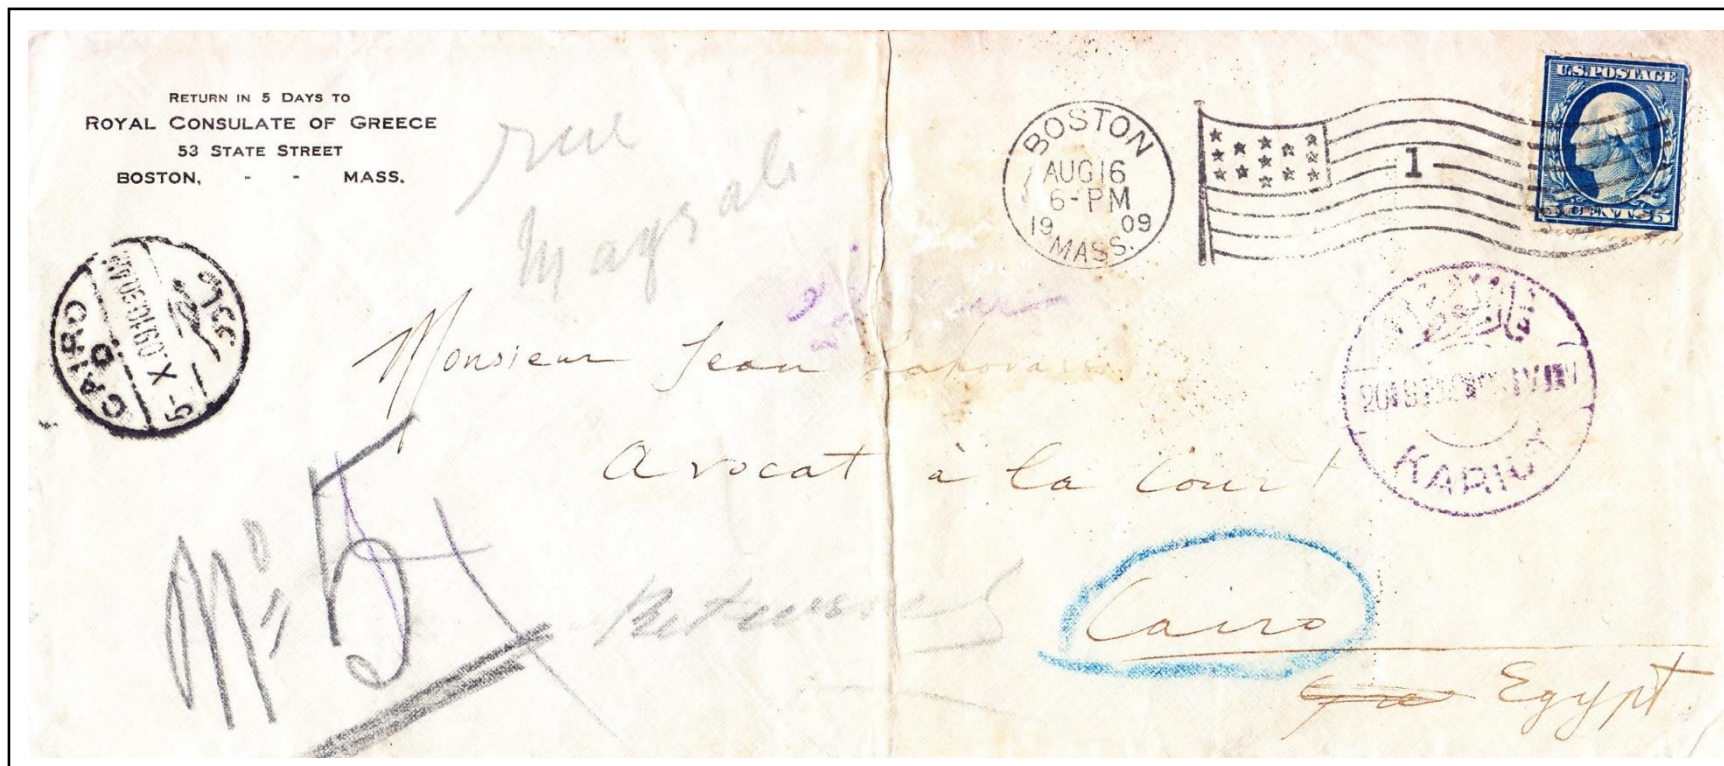 RETURN IN 5 DAYS TO
ROYAL CONSULATE OF GREECE
53 STATE STREET
BOSTON, - - MASS.
rue
BOSTON
AUG 16
6-PM
1909
MASS.
1
U.S. POSTAGE
5 CENTS 5
CAIRO
D
5-X 09 10.30 AM
Monsieur Jean
Avocat à la Court
KARIUY
Nº 5
Returned
Cairo
Egypt